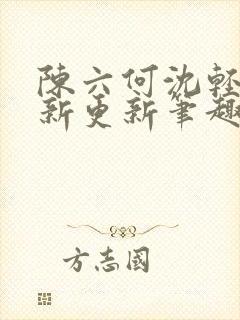 陳六何沈輕
新更新筆趣
方志國